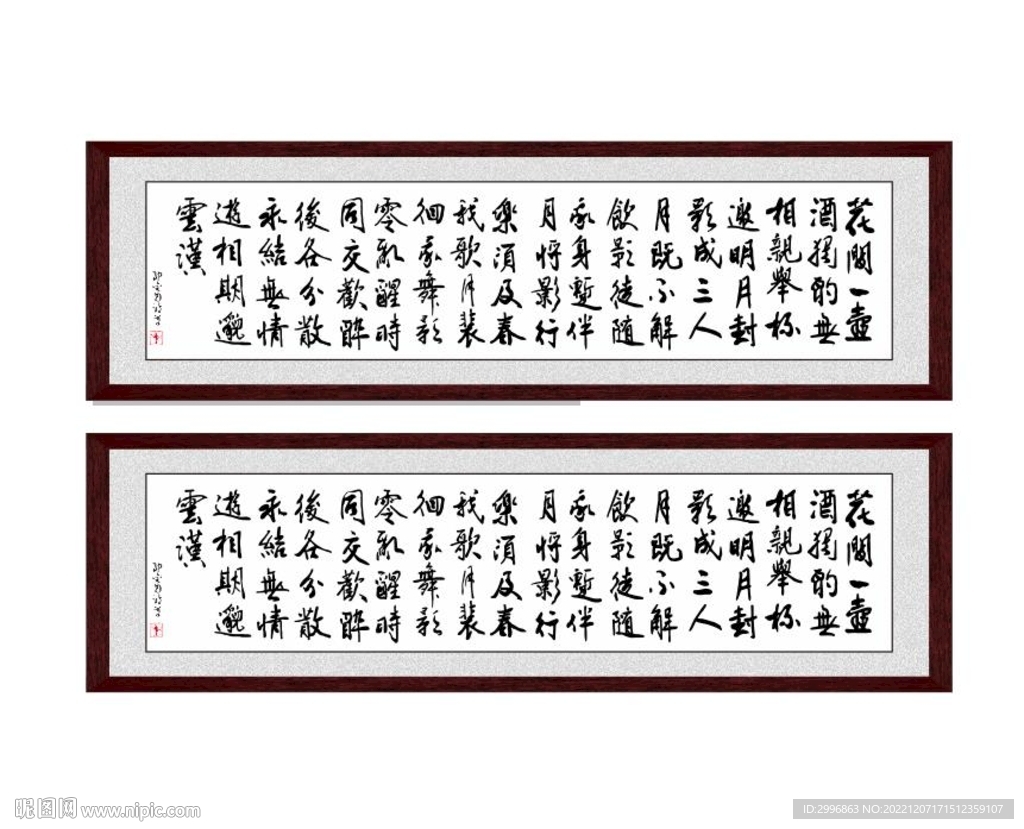 花間一壺
酒獨酌無
相親舉杯
邀明月對
影成三人
月既不解
飲影徒隨
我身暫伴
月將影行
樂須及春
我歌月裴
徊我舞影
零亂醒時
同交歡醉
後各分散
永結無情
遊相期邈
雲漢
花間一壺
酒獨酌無
相親舉杯
邀明月對
影成三人
月既不解
飲影徒隨
我身暫伴
月將影行
樂須及春
我歌月裴
徊我舞影
零亂醒時
同交歡醉
後各分散
永結無情
遊相期邈
雲漢
昵图网 www.nipic.com
ID:2996863 NO:20221207171512359107